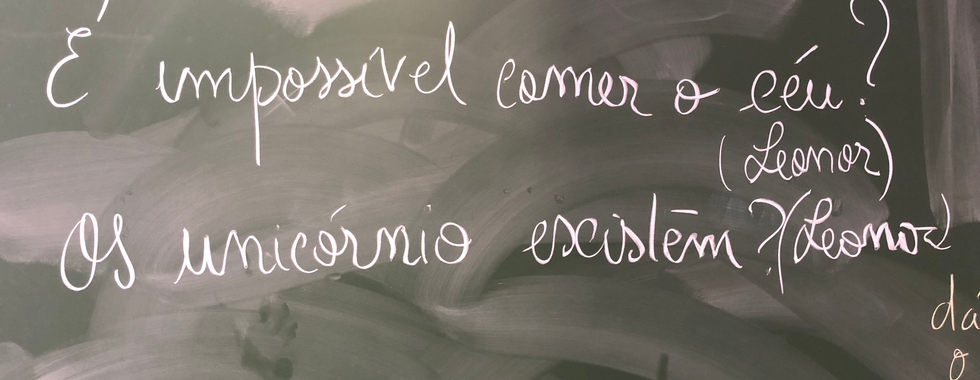 É impossível comer o céu?
(Leonor)
Os unicórnio existēm? (Leonor)
dá
o